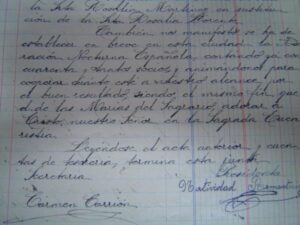 la Srta Rosalía Martínez en sustitu-
ción de la Srta Rosalía Llorente.
También nos manifestó se ha de
establecer en breve en esta ciudad la Ado-
ración Nocturna Española, contando ya con
cuarenta y tantos socios, y animándonos para
cooperar dentro está a nuestro alcance, por
el buen resultado, siendo, el mismo fin que
el de las Marías del Sagrario, adorar a
Cristo, nuestro Señor en la Sagrada Euca-
ristía.
Leyéndose el acta anterior y cuen-
tas de tesorería, termina esta junta
Secretaria Presidenta
Natividad
Carmen Carrión